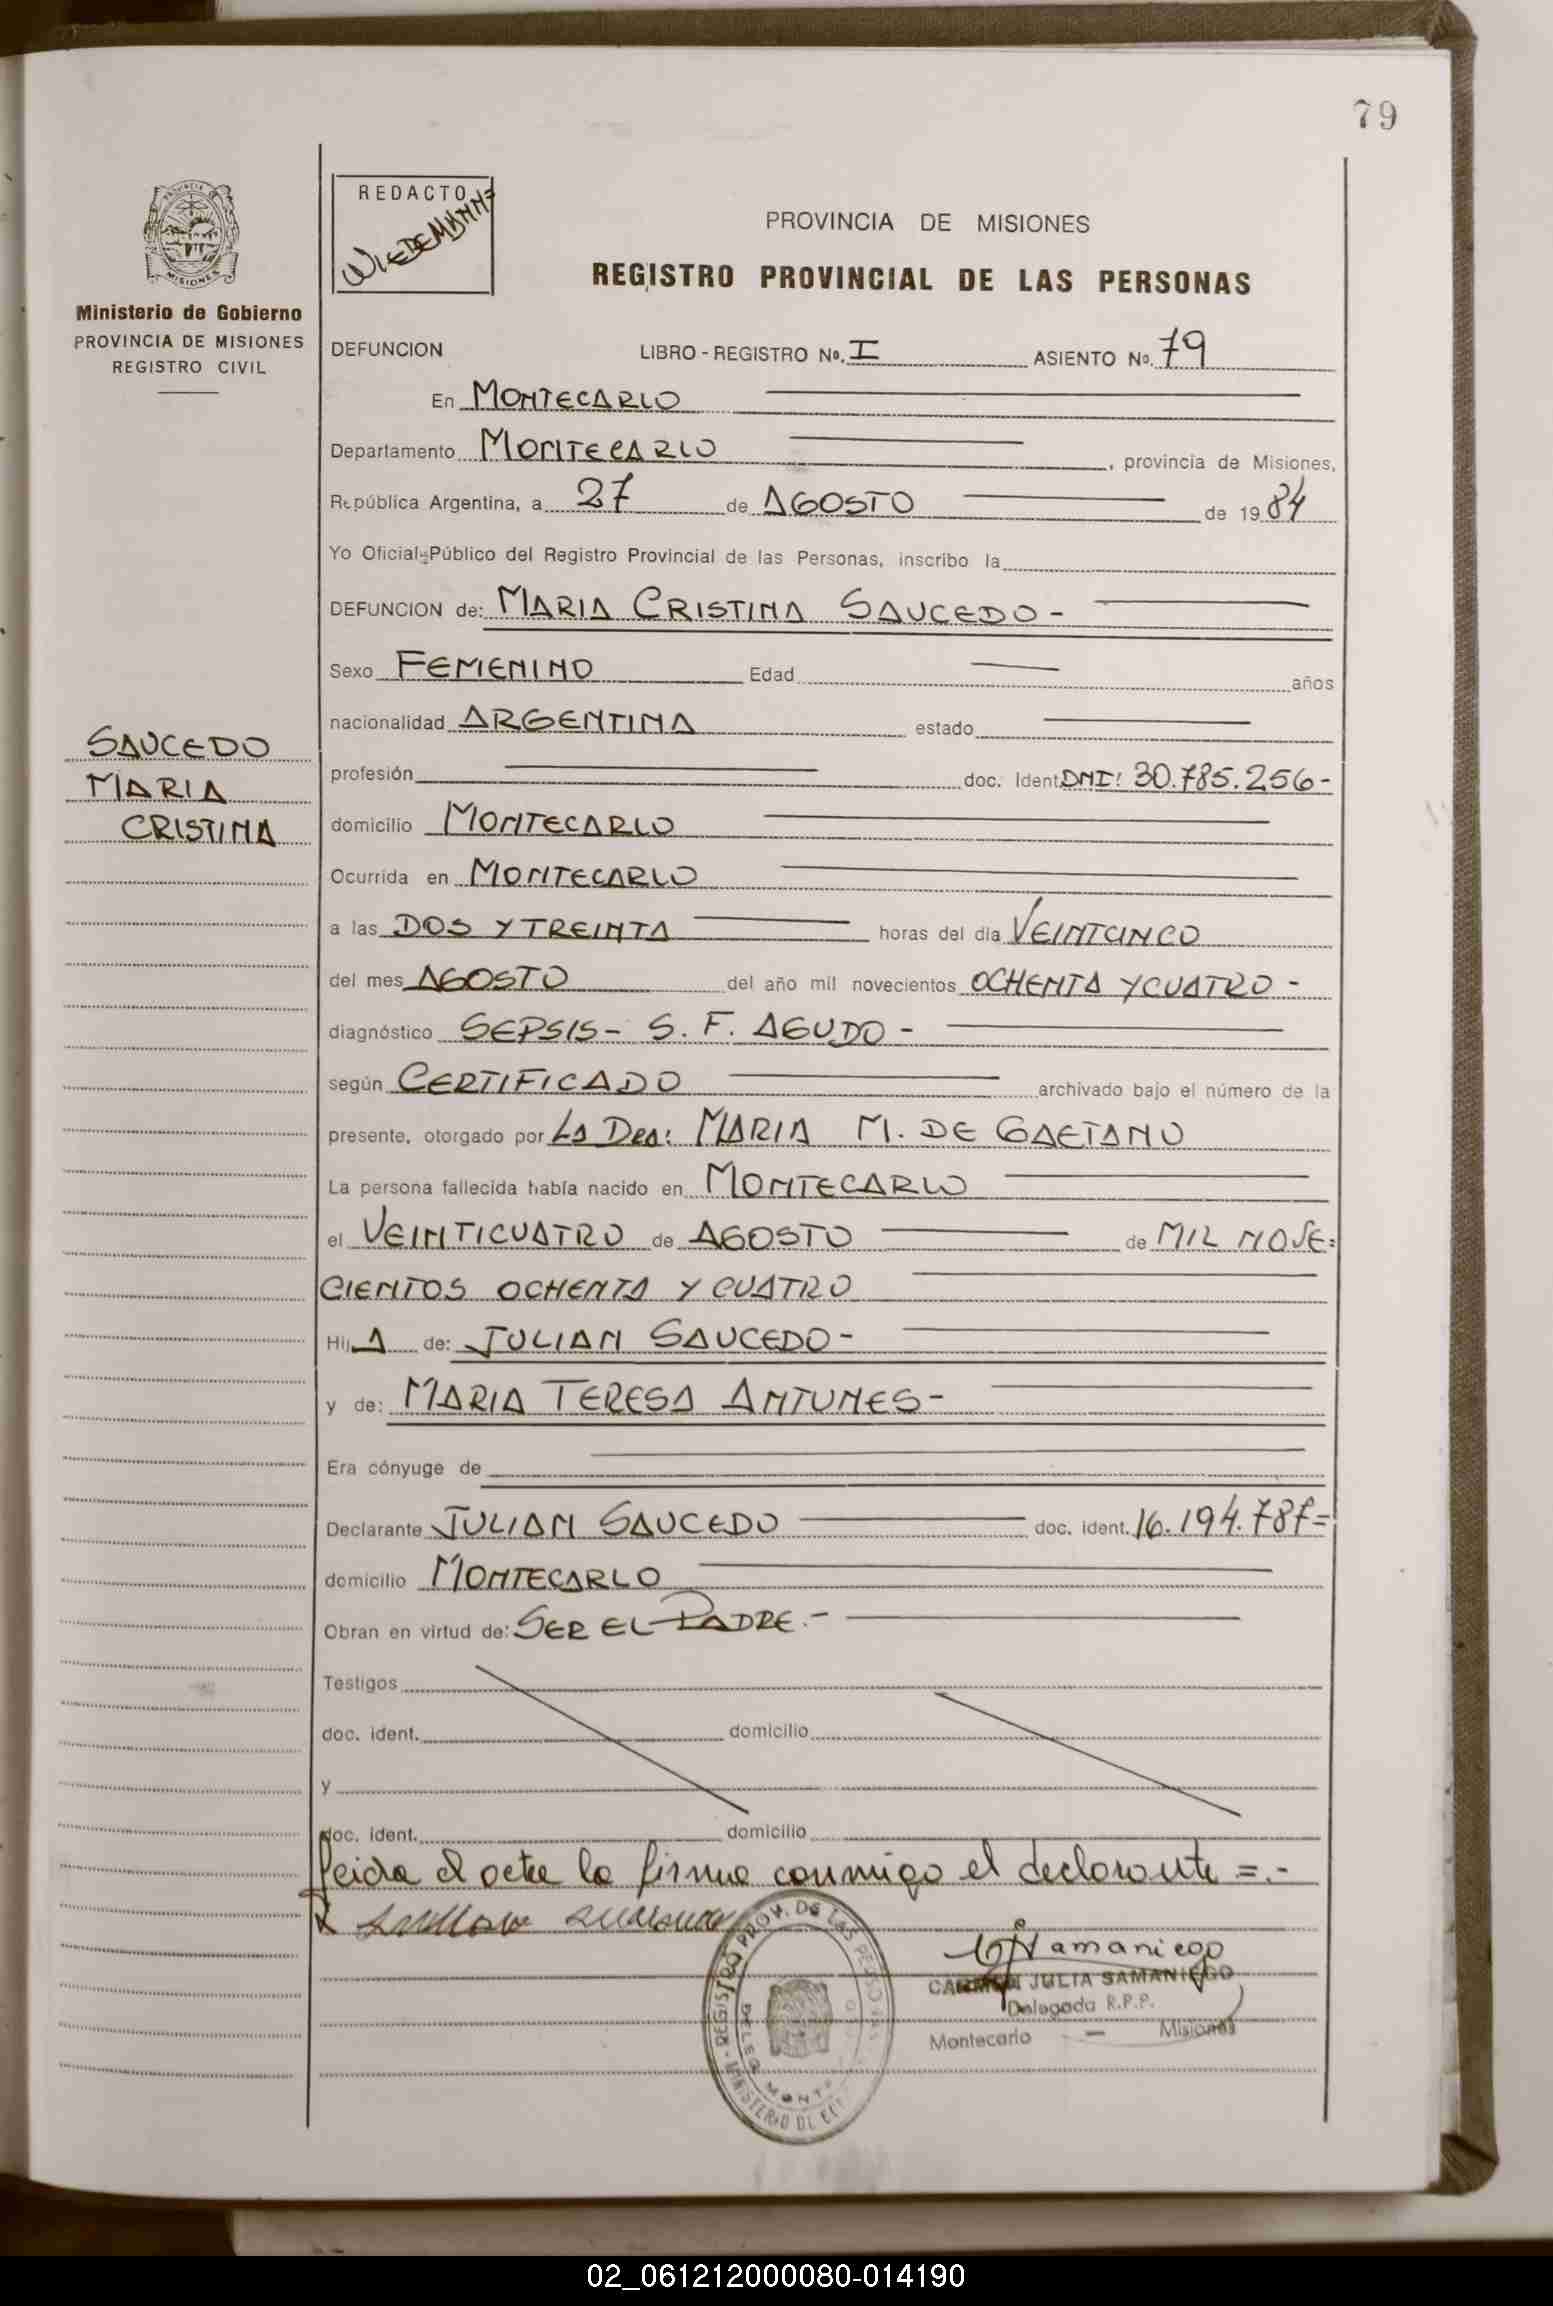 79
REDACTO
WIEDEMANN=
PROVINCIA DE MISIONES
REGISTRO PROVINCIAL DE LAS PERSONAS
MISIONES
Ministerio de Gobierno
PROVINCIA DE MISIONES
REGISTRO CIVIL
DEFUNCION LIBRO - REGISTRO No. I ASIENTO No. 79
En MONTECARLO
Departamento MONTECARLO, provincia de Misiones,
República Argentina, a 27 de AGOSTO de 1984
Yo Oficial Público del Registro Provincial de las Personas, inscribo la
DEFUNCION de: MARIA CRISTINA SAUCEDO -
Sexo FEMENINO Edad años
nacionalidad ARGENTINA estado
SAUCEDO
MARIA
CRISTINA
profesión doc. Ident DNI: 30.785.256-
domicilio MONTECARLO
Ocurrida en MONTECARLO
a las DOS Y TREINTA horas del día VEINTCINCO
del mes AGOSTO del año mil novecientos OCHENTA Y CUATRO -
diagnóstico SEPSIS - S. F. AGUDO -
según CERTIFICADO archivado bajo el número de la
presente, otorgado por LA DRA: MARIA M. DE GAETANO
La persona fallecida había nacido en MONTECARLO
el VEINTICUATRO de AGOSTO de MIL NOVE=
CIENTOS OCHENTA Y CUATRO
Hij A de: JULIAN SAUCEDO -
y de: MARIA TERESA ANTUNES -
Era cónyuge de
Declarante JULIAN SAUCEDO doc. ident. 16.194.787=
domicilio MONTECARLO
Obran en virtud de: SER EL PADRE.-
Testigos
doc. ident. domicilio
y
doc. ident. domicilio
Leida el acta la firma conmigo el declarante =.-
CARMEN JULIA SAMANIEGO
Delegada R.P.P.
Montecarlo — Misiones
02_061212000080-014190